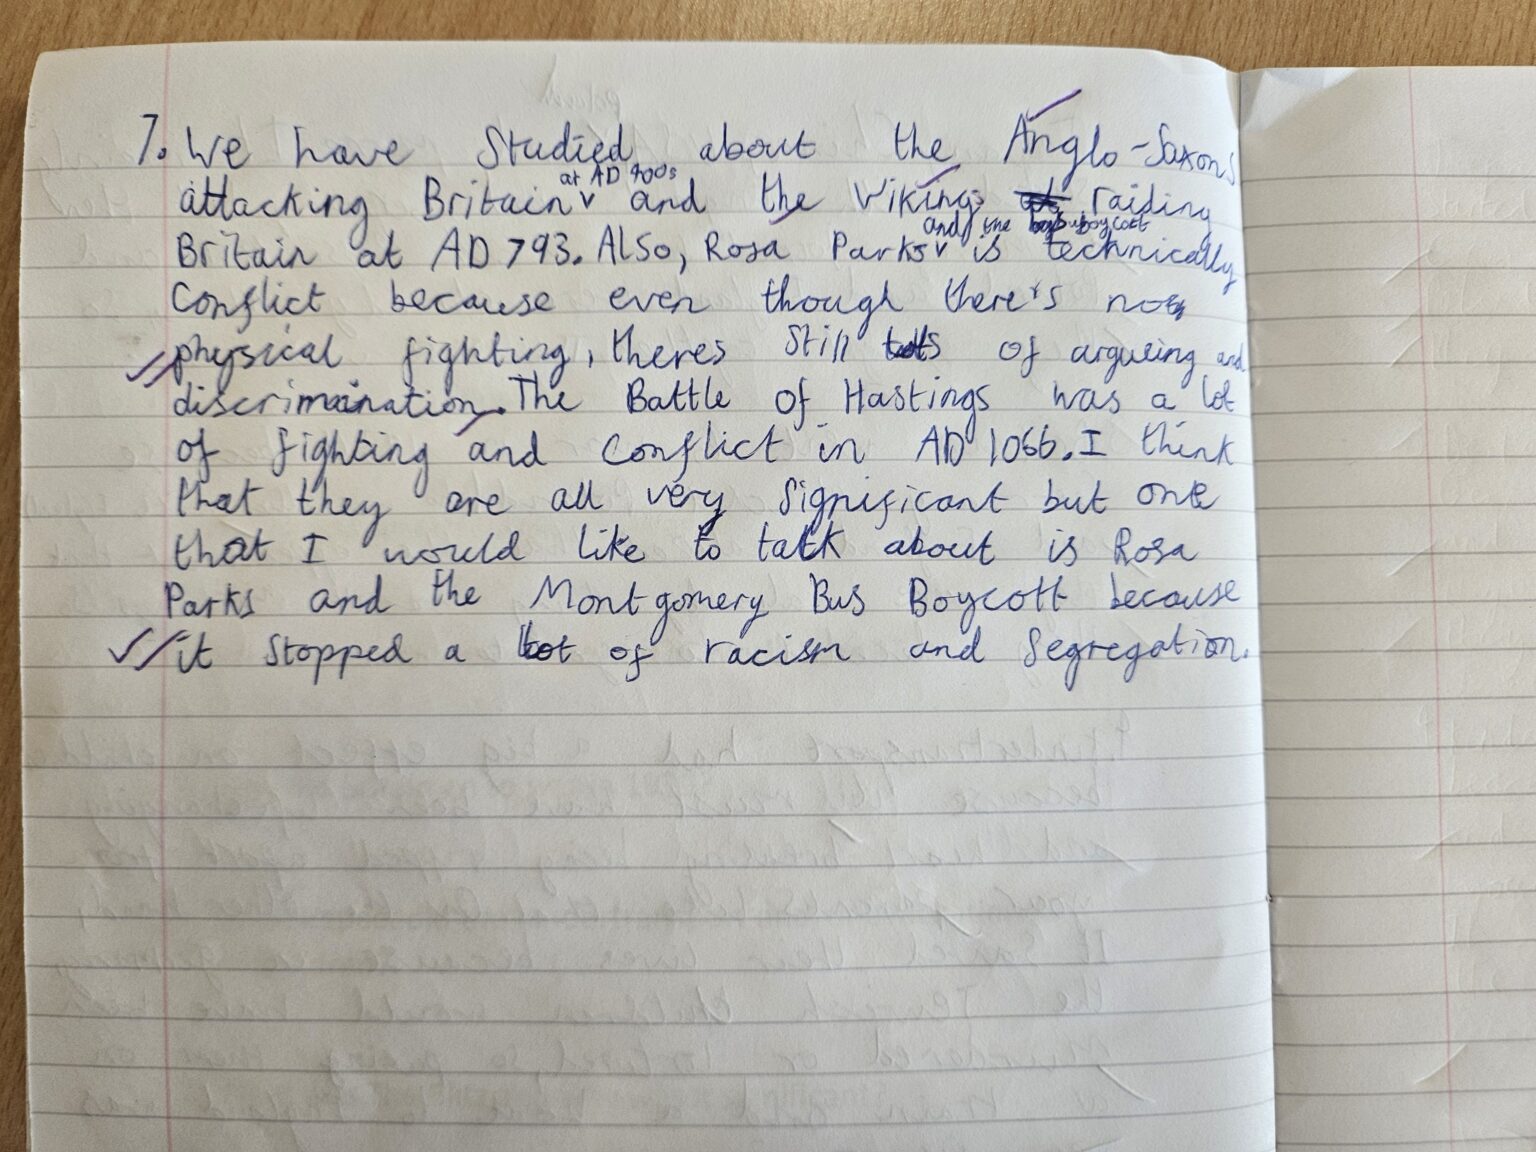 7. We have Studied about the Anglo-Saxons
attacking Britain at AD 400s and the Vikings raiding
Britain at AD 793. Also, Rosa Parks and the bus boycott is technically
Conflict because even though there's not
physical fighting, theres Still lots of argueing and
discrimination. The Battle of Hastings was a lot
of fighting and Conflict in AD 1066. I think
that they are all very Significant but one
that I would like to talk about is Rosa
Parks and the Montgomery Bus Boycott because
it Stopped a lot of racism and Segregation.